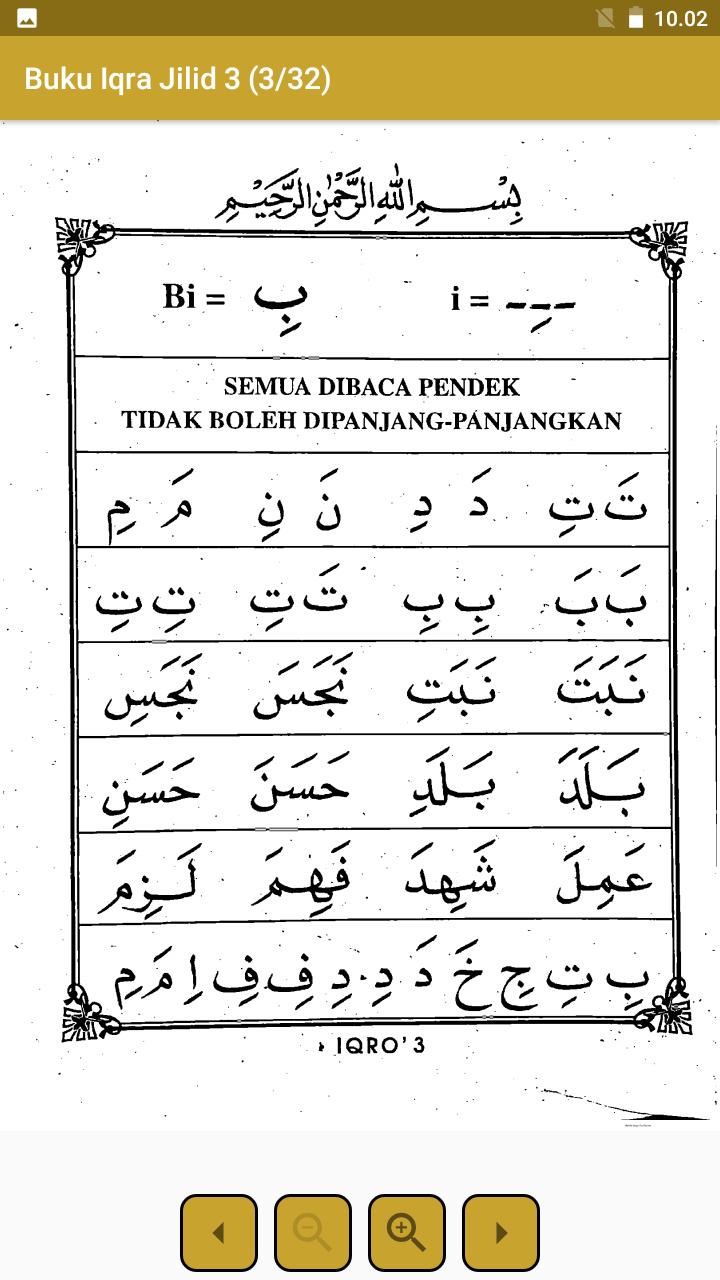 10.02
Buku Iqra Jilid 3 (3/32)
بِسْمِ اللّٰهِ الرَّحْمٰنِ الرَّحِيْمِ
ـِ = i بِ = Bi
SEMUA DIBACA PENDEK
TIDAK BOLEH DIPANJANG-PANJANGKAN
تَ تِ دَ دِ نَ نِ مَ مِ
بَ بَ بِ بِ تَ تِ تِ تِ
نَبَتَ نَبَتِ نَجَسَ نَجَسِ
بَلَدَ بَلَدِ حَسَنَ حَسَنِ
عَمِلَ شَهِدَ فَهِمَ لَزِمَ
بِ تِ جِ خَ دَ دِ دِ فِ فِ اِ مَ مِ
IQRO' 3